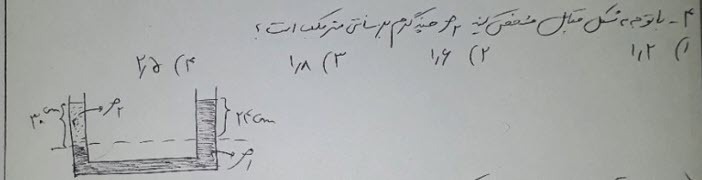 ۴- با توجه به شکل مقابل مشخص کنید ρ۲ چند گرم بر سانتی متر مکعب است؟
۱) ۱٫۲ ۲) ۱٫۶ ۳) ۱٫۸ ۴) ۲٫۵
۳۰cm ρ۲ ۲۴cm
ρ۱